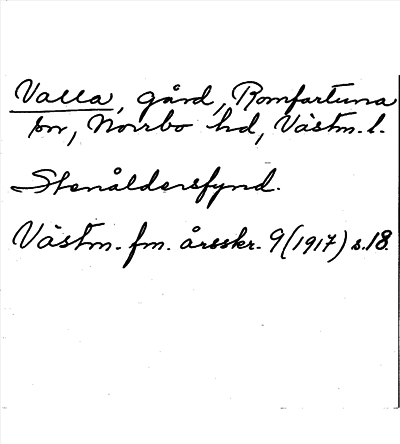 Valla, gård, Romfartuna
sn, Norrbo hd, Västm. l.
Stenåldersfynd.
Västm. fm. årsskr. 9 (1917) s. 18.